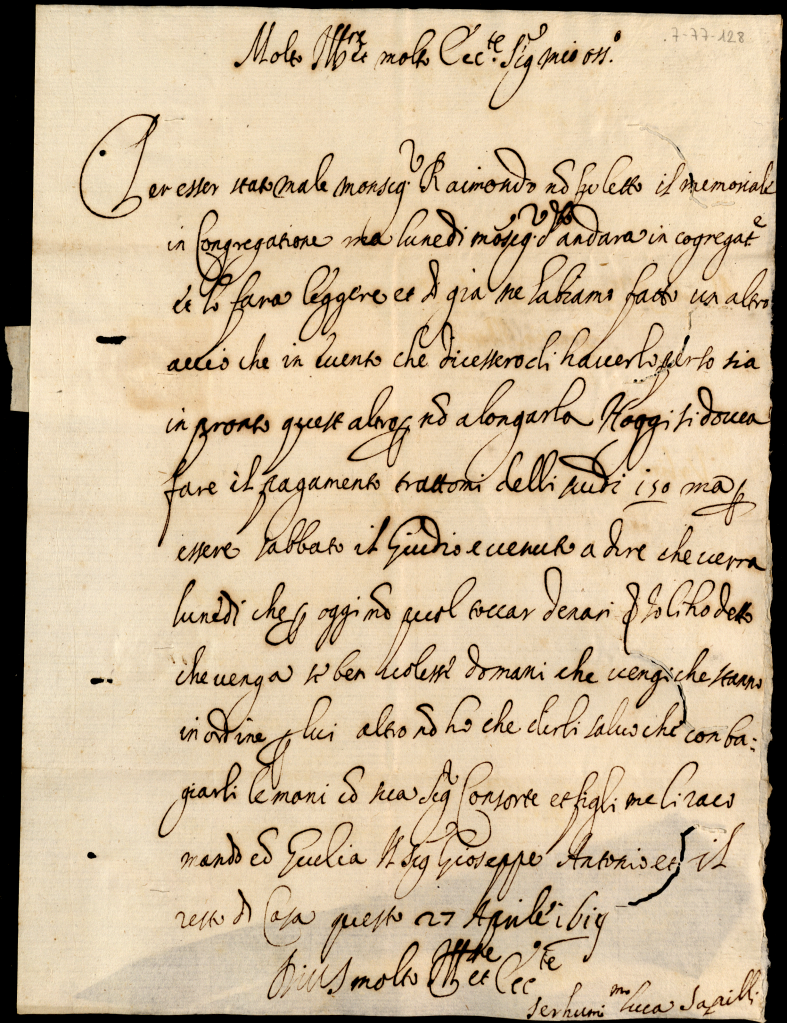 7-77-128
Molto Ill.re et molto Ecc.te Sig.r mio oss.o
Per esser stato male monsig.r Raimondo nõ fu letto il memoriale
in Congregatione ma lunedi mõsig.r andara in cogregat.e
et lo fara leggere et di gia ne habiamo fatto un altro
accio che in evento che dicessero di haverlo perso sia
in pronto quest altro p nõ alongarla Hoggi si dovea
fare il pagamento delli scudi 150 ma p
essere sabbato il Giudio e venuto a dire che verra
lunedi che p oggi nõ puol toccar denari Io li ho detto
che venga se ben volesse domani che venga che stanno
in ordine p lui altro nõ ho che dirli salvo che con ba:
giarli le mani cõ sua Sig.ra Consorte et figli me li raco
mando cõ Giulia Il Sig Gioseppe Antonio et il
resto di Casa questo 27 Aprile 1619
Di V S molto Ill.tre et Ecc.te
Ser humi.mo Luca